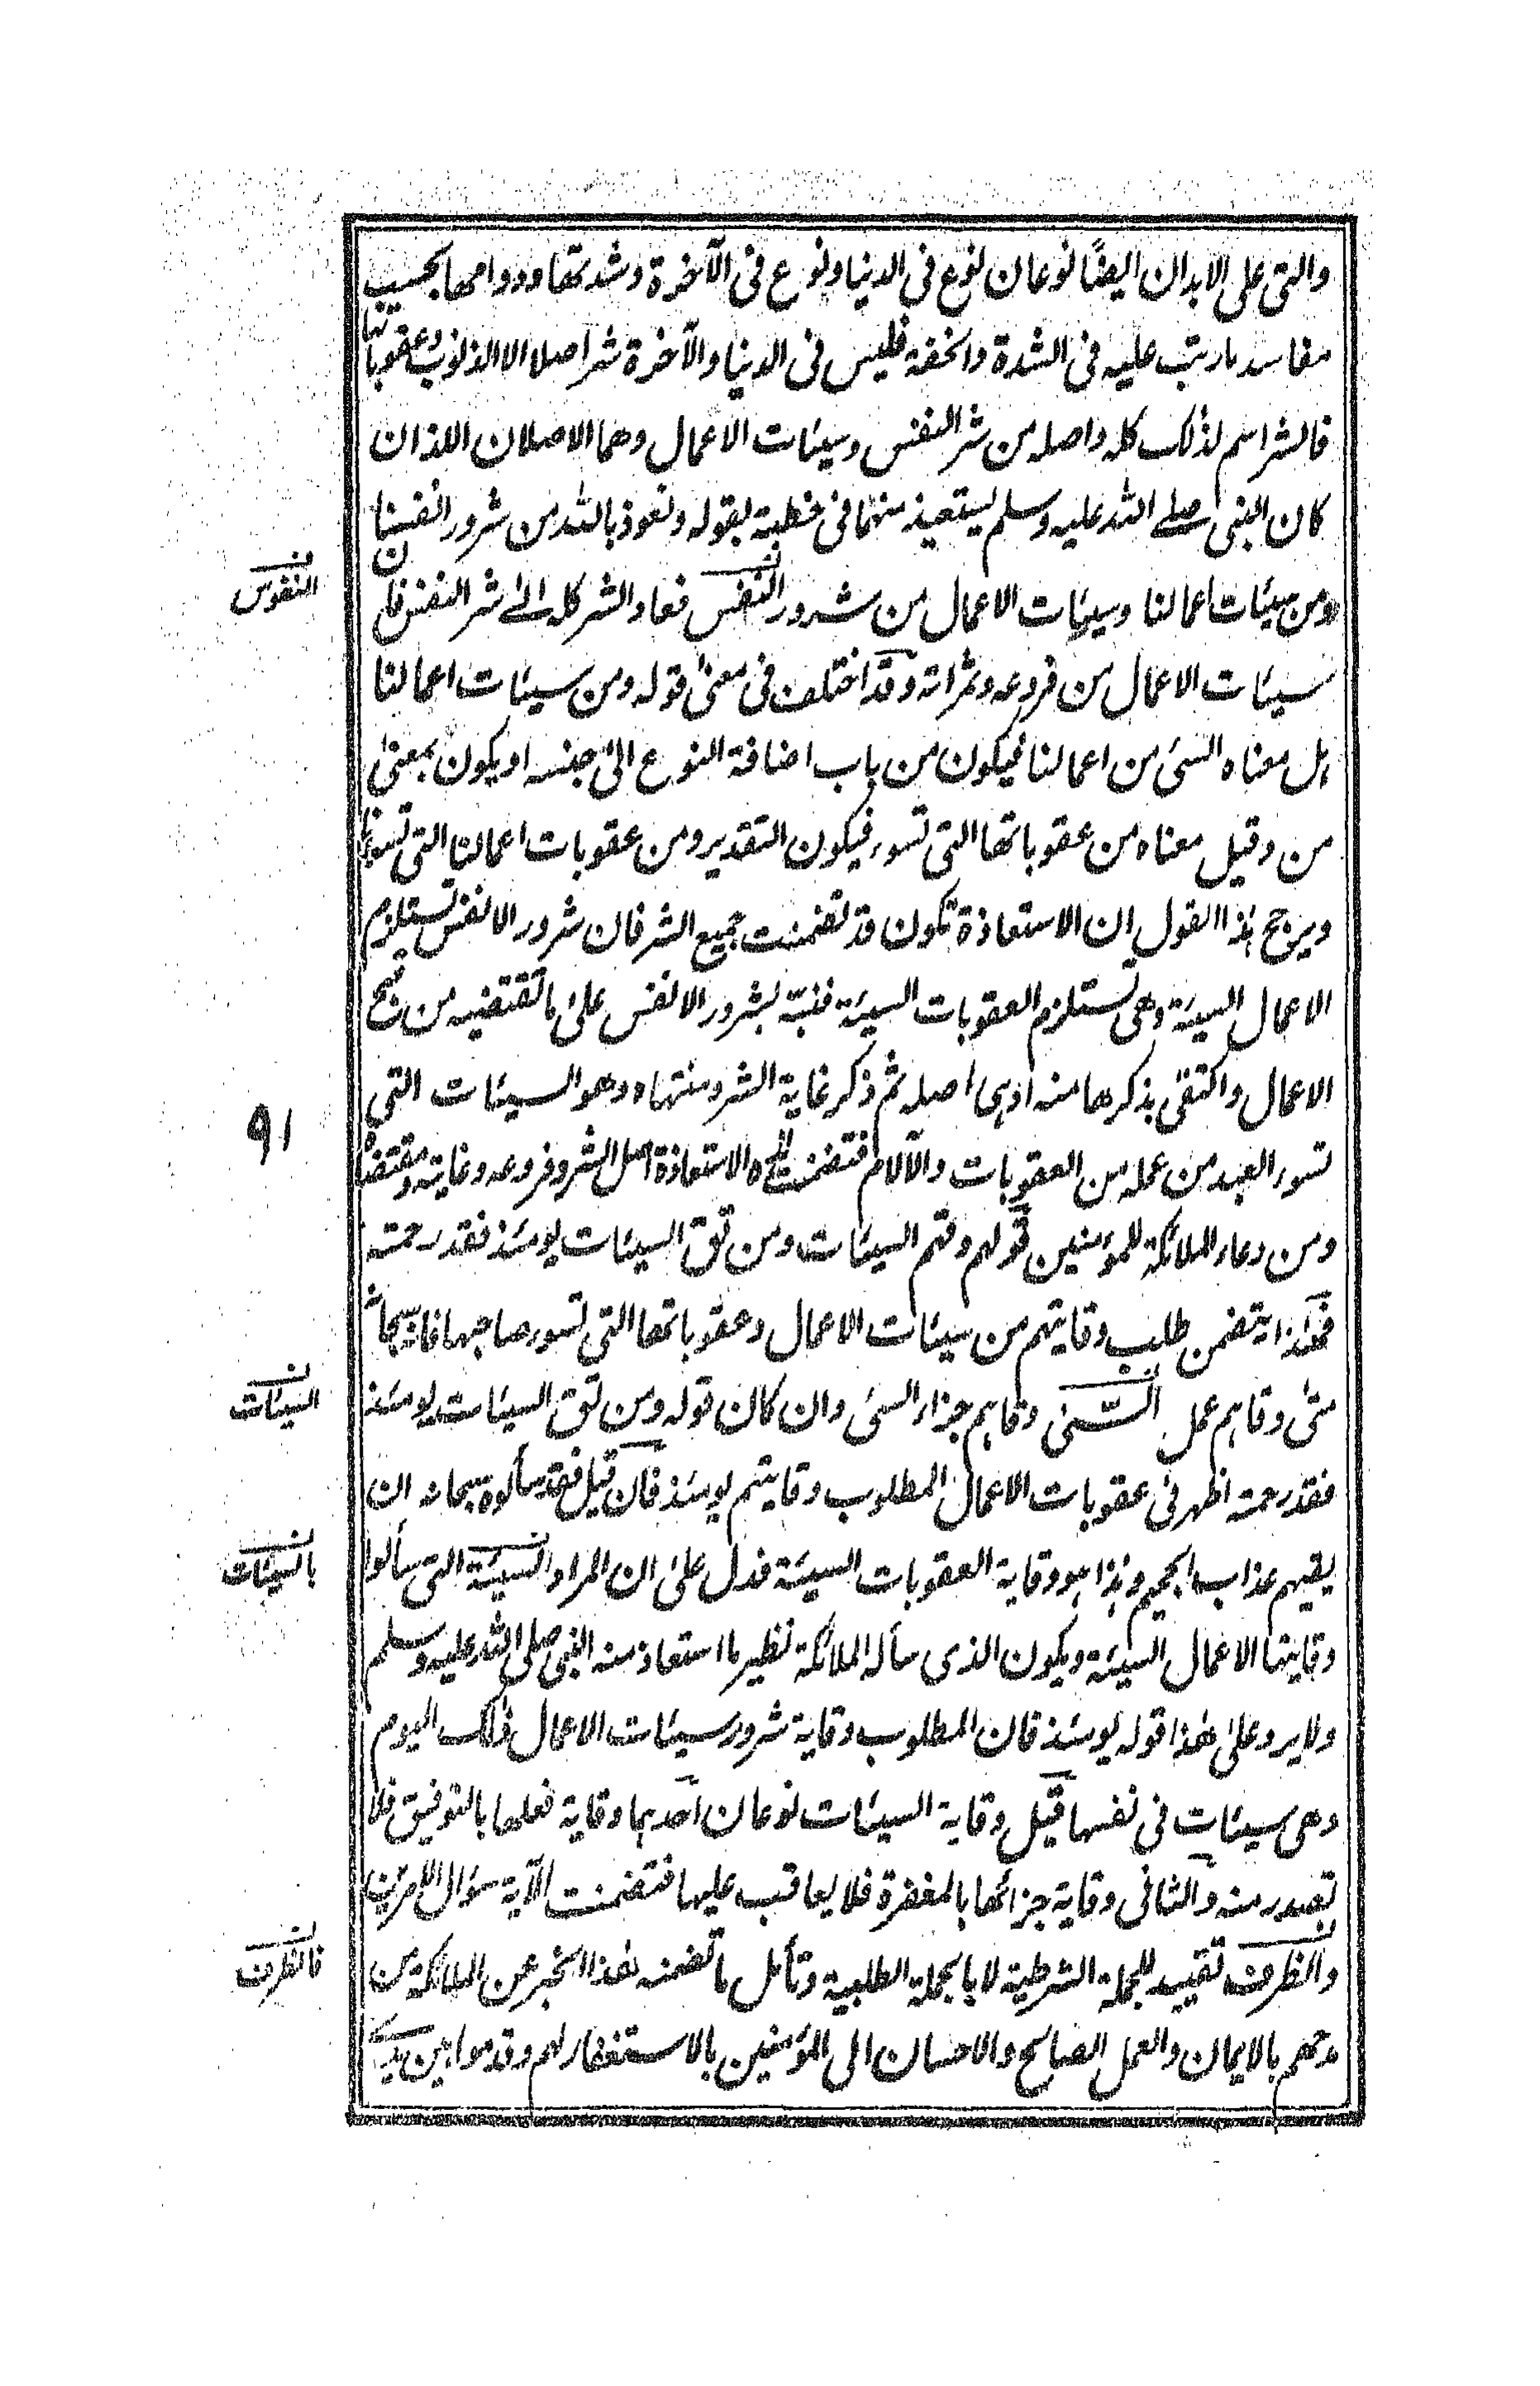 والتی علی الابدان ایضًا نوعان نوع فی الدنیا ونوع فی الآخرة وشدتها ودوامها بحسب
مفاسد ما رتب علیه فی الشدة والخفة فلیس فی الدنیا والآخرة شر اصلا الا الذنوب وعقوباتها
فالشر اسم لذلک کله واصله من شر النفس وسیئات الاعمال وهما الاصلان اللذان
کان النبی صلے الله علیه وسلم یستعیذ منهما فی خطبة بقوله ونعوذ بالله من شرور انفسنا
ومن سیئات اعمالنا وسیئات الاعمال من شرور النفس فعاد الشر کله الے شر النفس فان
سیئات الاعمال من فروعه وثمراته وقد اختلف فی معنی قوله ومن سیئات اعمالنا
هل معناه السیٔ من اعمالنا فیکون من باب اضافة النوع الی جنسه او یکون بمعنی
من وقیل معناه من عقوباتها التی تسوء فیکون التقدیر ومن عقوبات اعمالنا التی تسوءنا
ویرجح هذا القول ان الاستعاذة تکون قد تضمنت جمیع الشر فان شرور الانفس تستلزم
الاعمال السیئة وهی تستلزم العقوبات السیئة فنبّه بشرور الانفس علی ما تقتضیه من قبح
الاعمال واکتفی بذکرها منه اذ هی اصله ثم ذکر غایة الشر ومنتهاه وهو السیئات التی
تسوء العبد من عمله من العقوبات والآلام فتضمنت هذه الاستعاذة اصل الشر وفروعه وغایته ومقتضاه
ومن دعاء الملائکة للمؤمنین قولهم وقهم السیئات ومن تق السیئات یومئذ فقد رحمته
فهذا یتضمن طلب وقایتهم من سیئات الاعمال وعقوباتها التی تسوء صاحبها فانه سبحانه
متی وقاهم عمل السّیٔ وقاهم جزاء السیٔ وان کان قوله ومن تق السیئات یومئذ
فقد رحمته اظهر فی عقوبات الاعمال المطلوب وقایتهم یومئذ فان قیل فقد سألوه سبحانه ان
یقیهم عذاب الجحیم وهذا هو وقایة العقوبات السیئة فدل علی ان المراد السیئة التی سألوا
وقایتها الاعمال السیئة ویکون الذی سأله الملائکة نظیر ما استعاذ منه النبی صلی الله علیه وسلم
ولا یرد علی هذا قوله یومئذ فان المطلوب وقایة شرور سیئات الاعمال ذلک الیوم
وهی سیئات فی نفسها قیل وقایة السیئات نوعان احدهما وقایة فعلها بالتوفیق فلا
تصدر منه والثانی وقایة جزائها بالمغفرة فلا یعاقب علیها فتضمنت الآیة سؤال الامرین
والظرف تقیید للجملة الشرطیة لا بالجملة الطلبیة وتأمل ما تضمنه هذا الخبر عن الملائکة من
مدحهم بالایمان والعمل الصالح والاحسان الی المؤمنین بالاستغفار لهم وقدموا بین یدی
النفوس
91
السیئات
بالسیئات
فالظرف